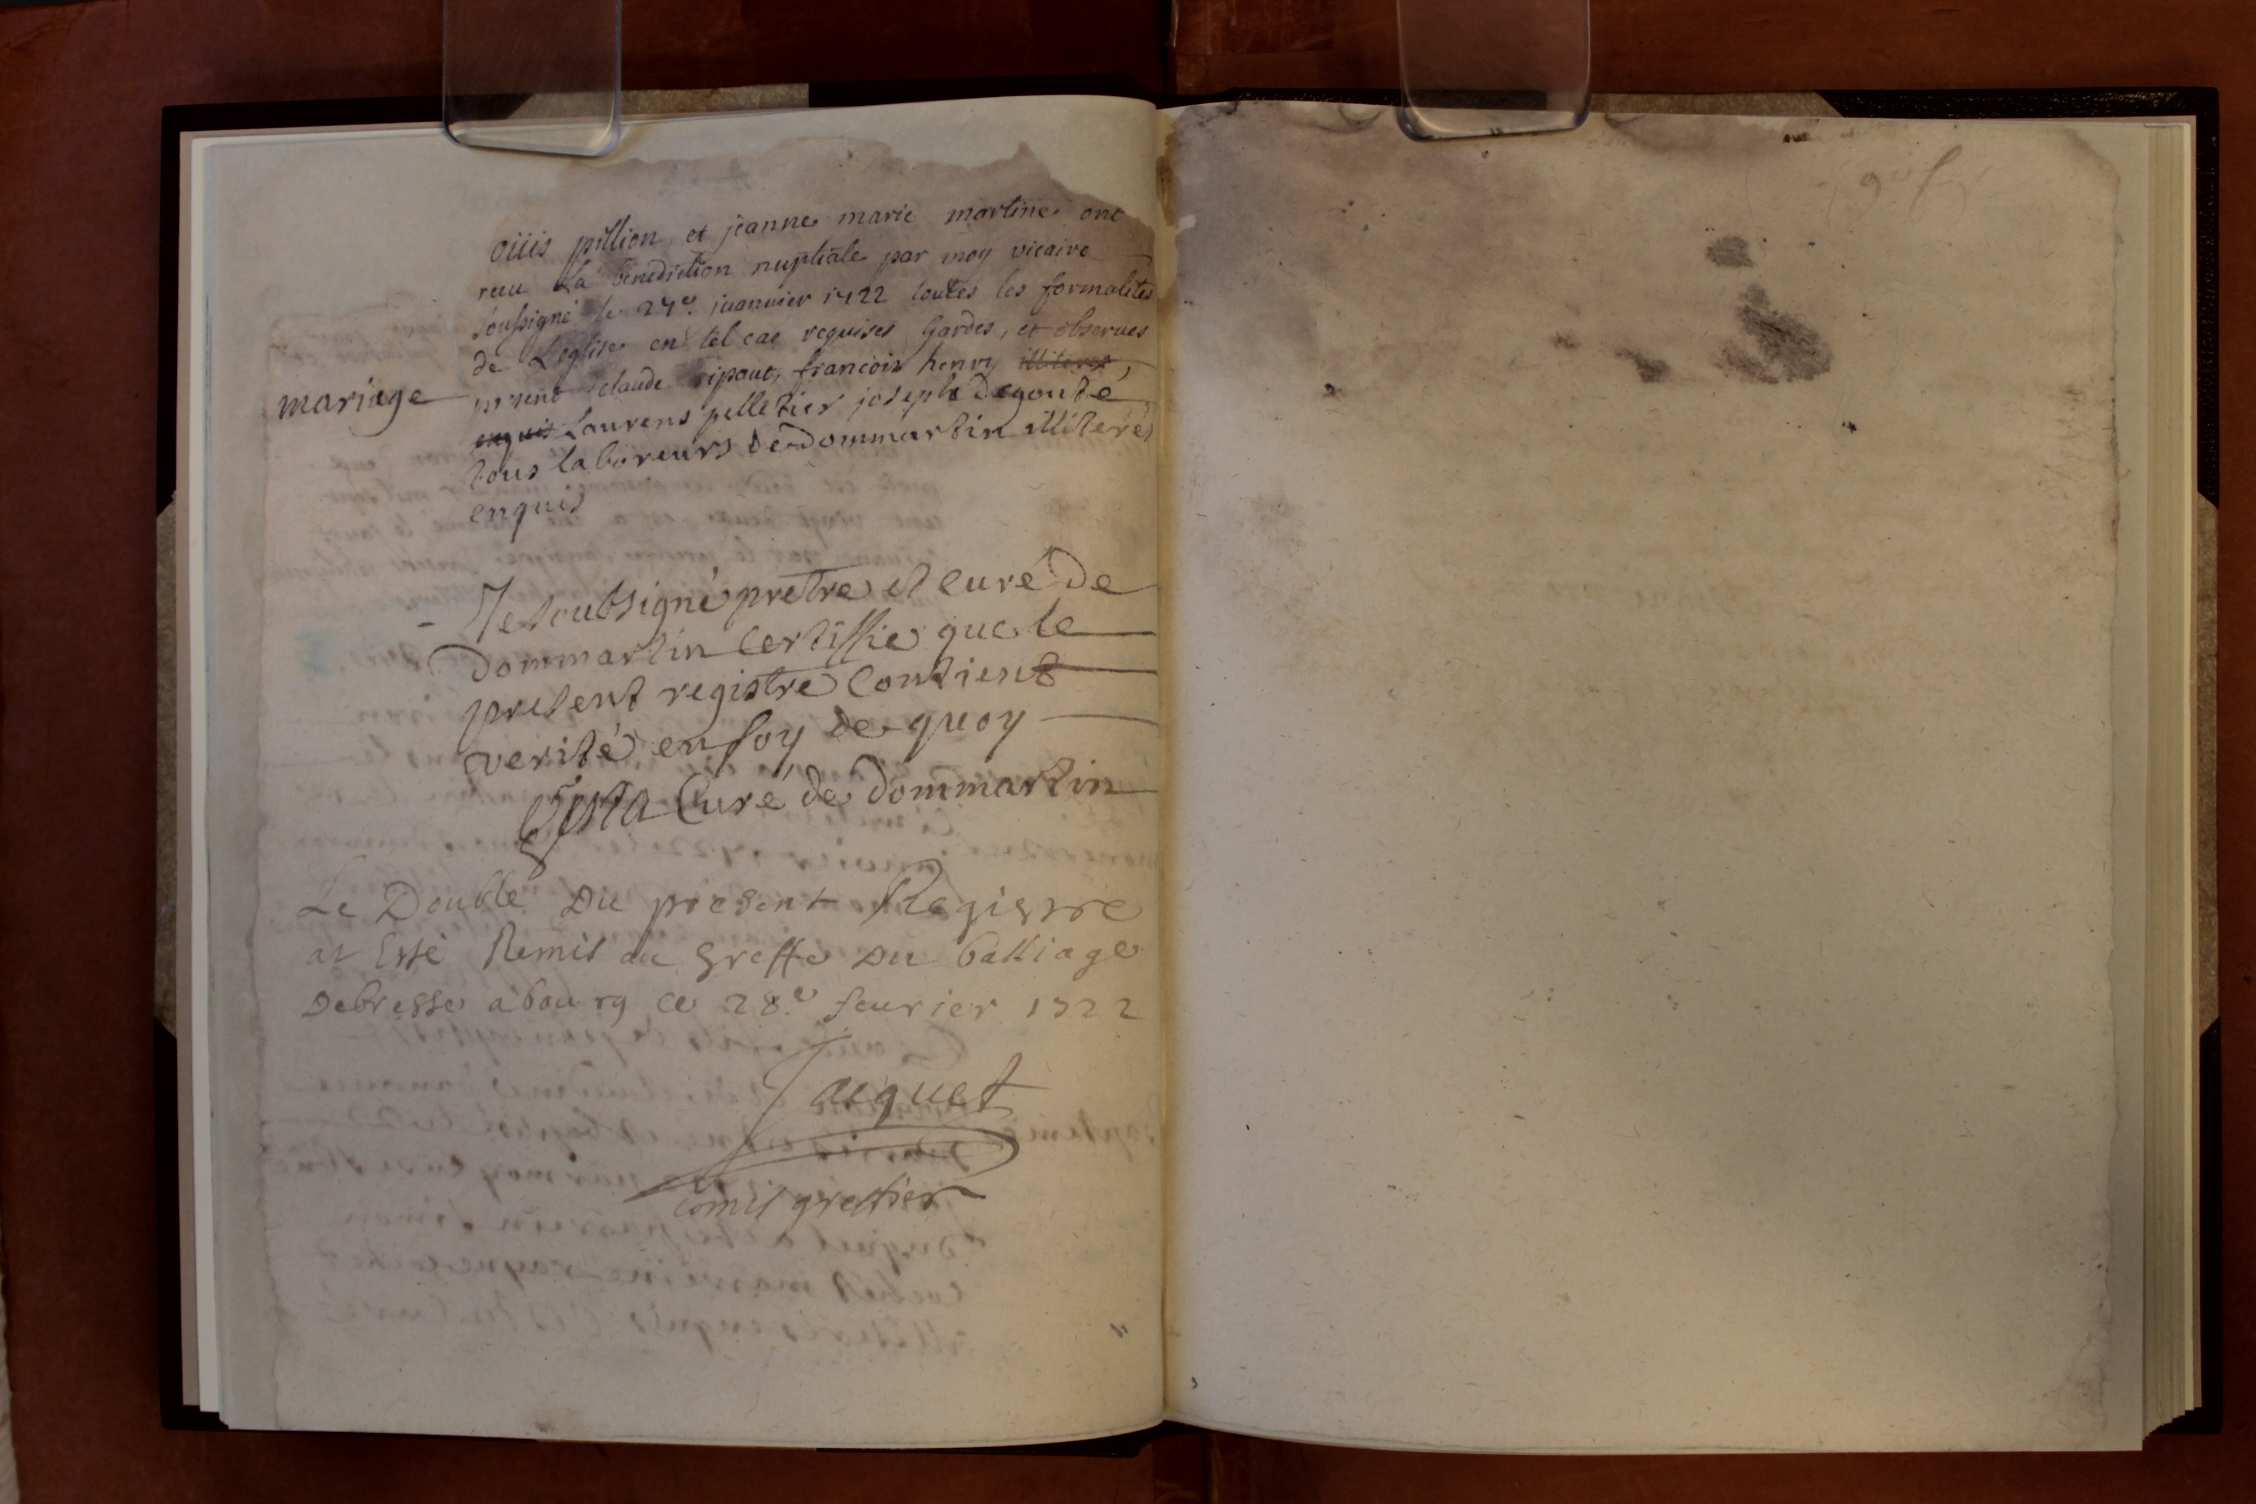 oüis pillion et jeanne marie martine ont
receu La benediction nuptiale par moy vicaire
soussigné le 27e. juanuier 1722 toutes les formalités
de L'eglise en tel cas requises Gardes, et obserues
present claude ripout, francois henry illiteres,
mariage
enquis Laurens pelletier joseph Degouté
tous laboreurs de dommartin illiteres
enquis
Je soubsigné pretre et curé de
Dommartin certiffie que le
present registre contient
verité en foy de quoy
Curé de Dommartin
Le Double Du present Registre
at Esté Remis au Greffe Du balliage
Debresse a bourg ce 28.e feurier 1722
Jacquet
Comis greffier